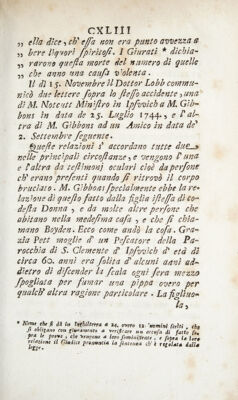 CXLIII
„ ella dice, ch' essa non era punto avvezza a
„ bere liquori spiritosi. I Giurati * dichia-
„ rarono questa morte del numero di quelle
„ che anno una causa violenta.
Il dì 15. Novembre il Dottor Lobb comuni-
cò due lettere sopra lo stesso accidente, una
di M. Notcutt Ministro in Ipsovich a M. Gib-
bons in data de 25. Luglio 1744., e l' al-
tra di M. Gibbons ad un Amico in data de'
2. Settembre seguente.
Queste relazioni s' accordano tutte due
nelle principali circostanze, e vengono l' una
e l' altra da testimonj oculari cioè da persone
ch' erano presenti quando si ritrovò il corpo
bruciato. M. Gibbons specialmente ebbe la re-
lazione di questo fatto dalla figlia istessa di co-
desta Donna, e da molte altre persone che
abitano nella medesima casa, e che si chia-
mano Boyden. Ecco come andò la cosa. Gra-
zia Pett moglie d' un Pescatore della Pa-
rocchia di S. Clemente d' Ipsovich d' età di
circa 60. anni era solita d' alcuni anni ad-
dietro di discender la scala ogni sera mezzo
spogliata per fumar una pippa ovvero per
qualch' altra ragione particolare. La figlino-
la,
* Nome che si dà in Inghilterra a 24. overo 12 uomini scelti, che
si obligano con giuramento a verificare un accusa di fatto so-
pra le prove, che vengono a loro somministrate, e sopra la loro
relazione il Giudice pronunzia la sentenza ch' è regolata dalla
legge.